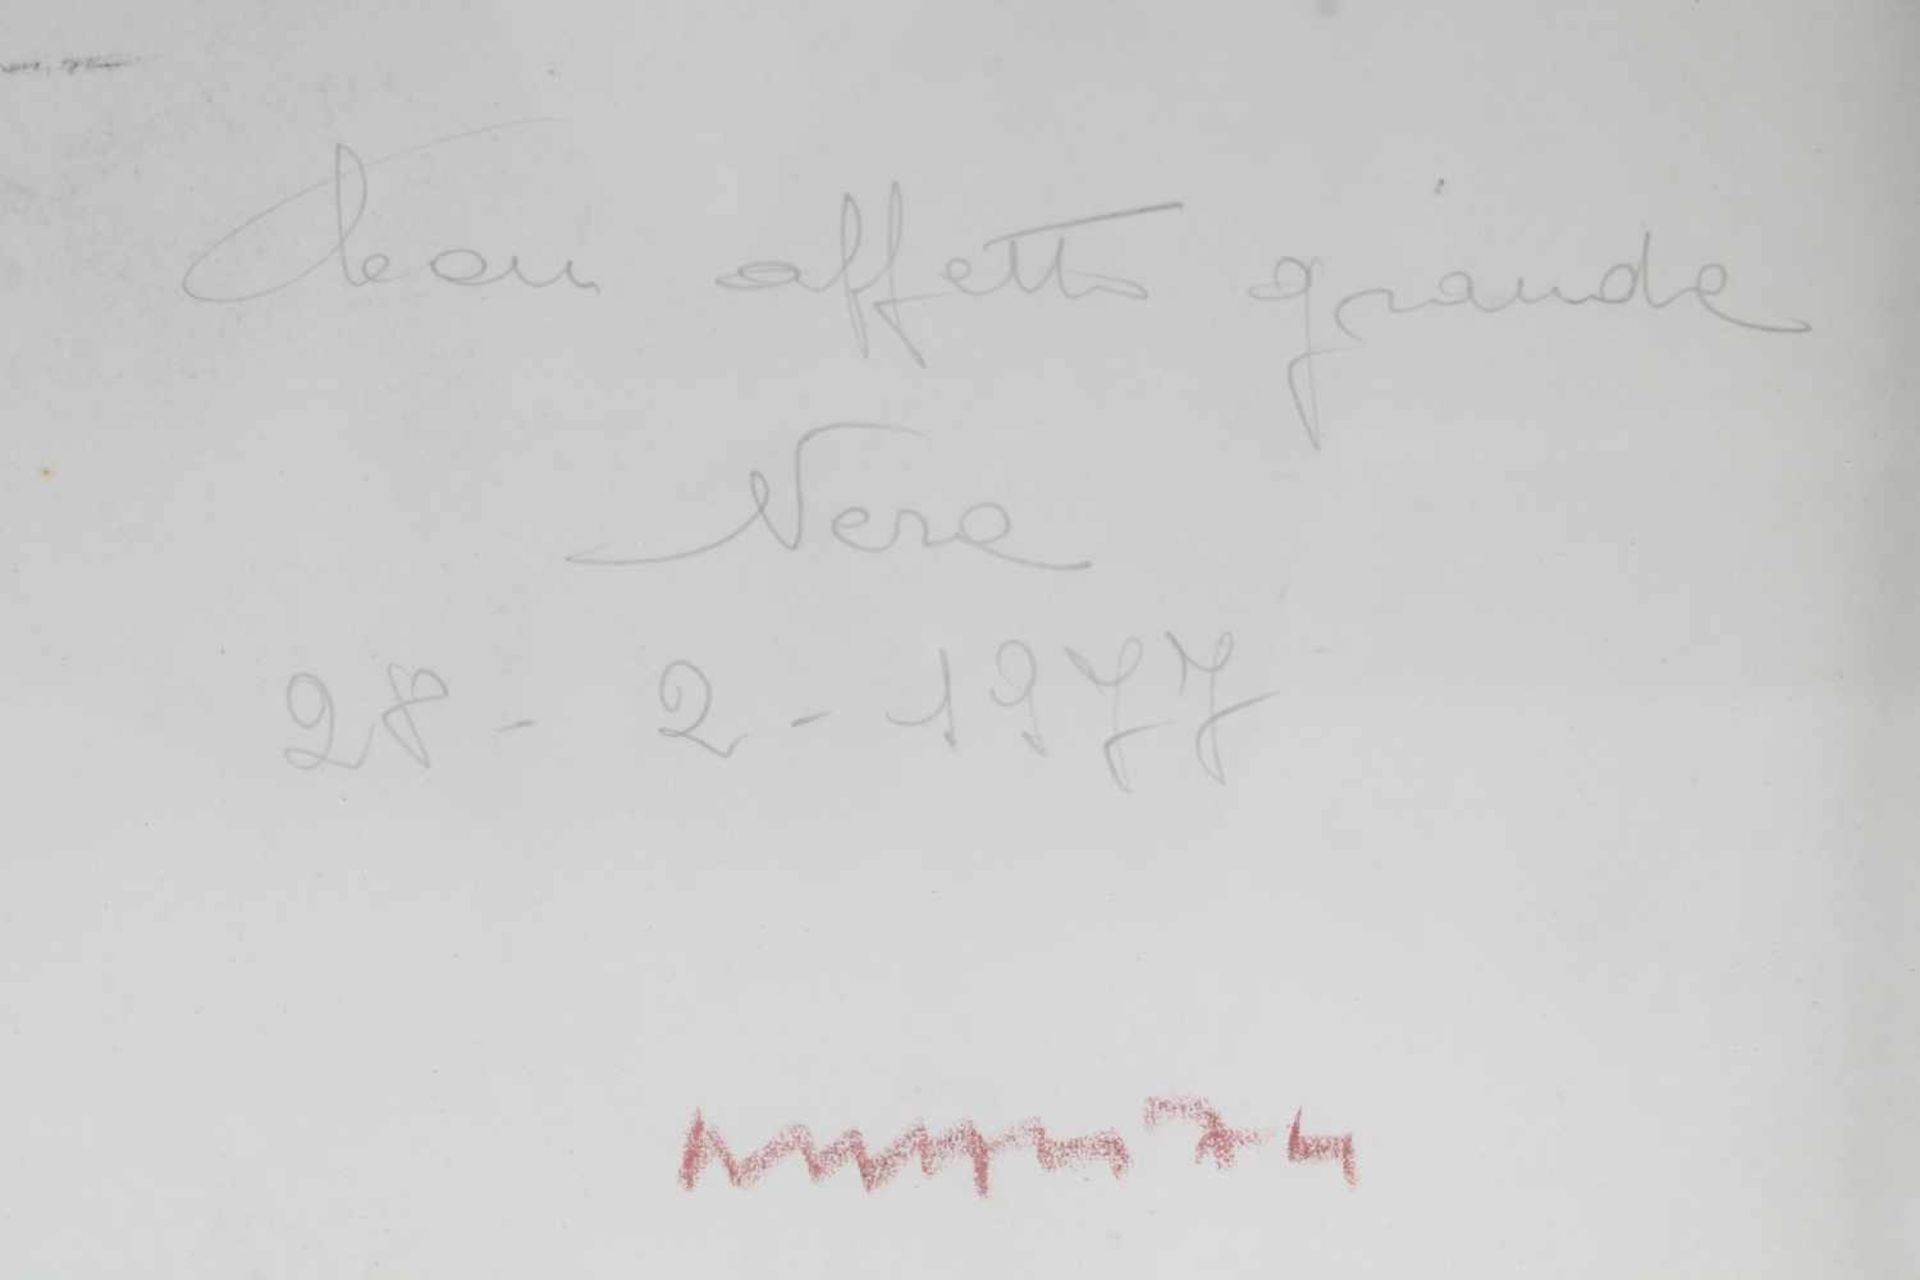 Con affetto grande
Vera
28-2-1977
74